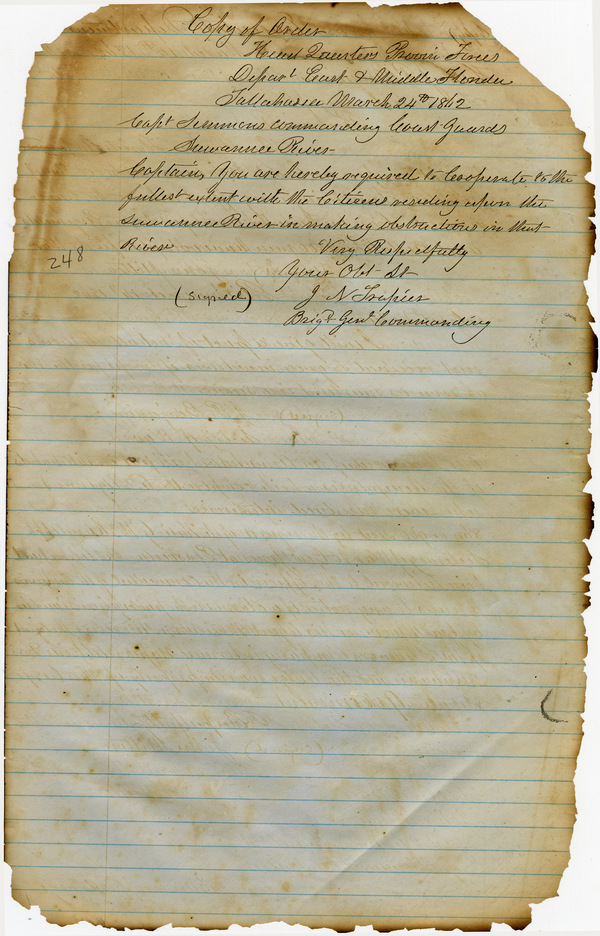 Copy of Order
Head Quarters Provis Forces
Depart East & Middle Florida
Tallahassee March 24th 1862
Capt Simmons commanding Coast Guards
Suwannee River
Captain, You are hereby required to Cooperate to the
fullest extent with the Citizens residing upon the
Suwannee River in making obstructions in that
River Very Respectfully
Your Obt St
248
(signed) J N Trapier
Brigr Genl Commanding